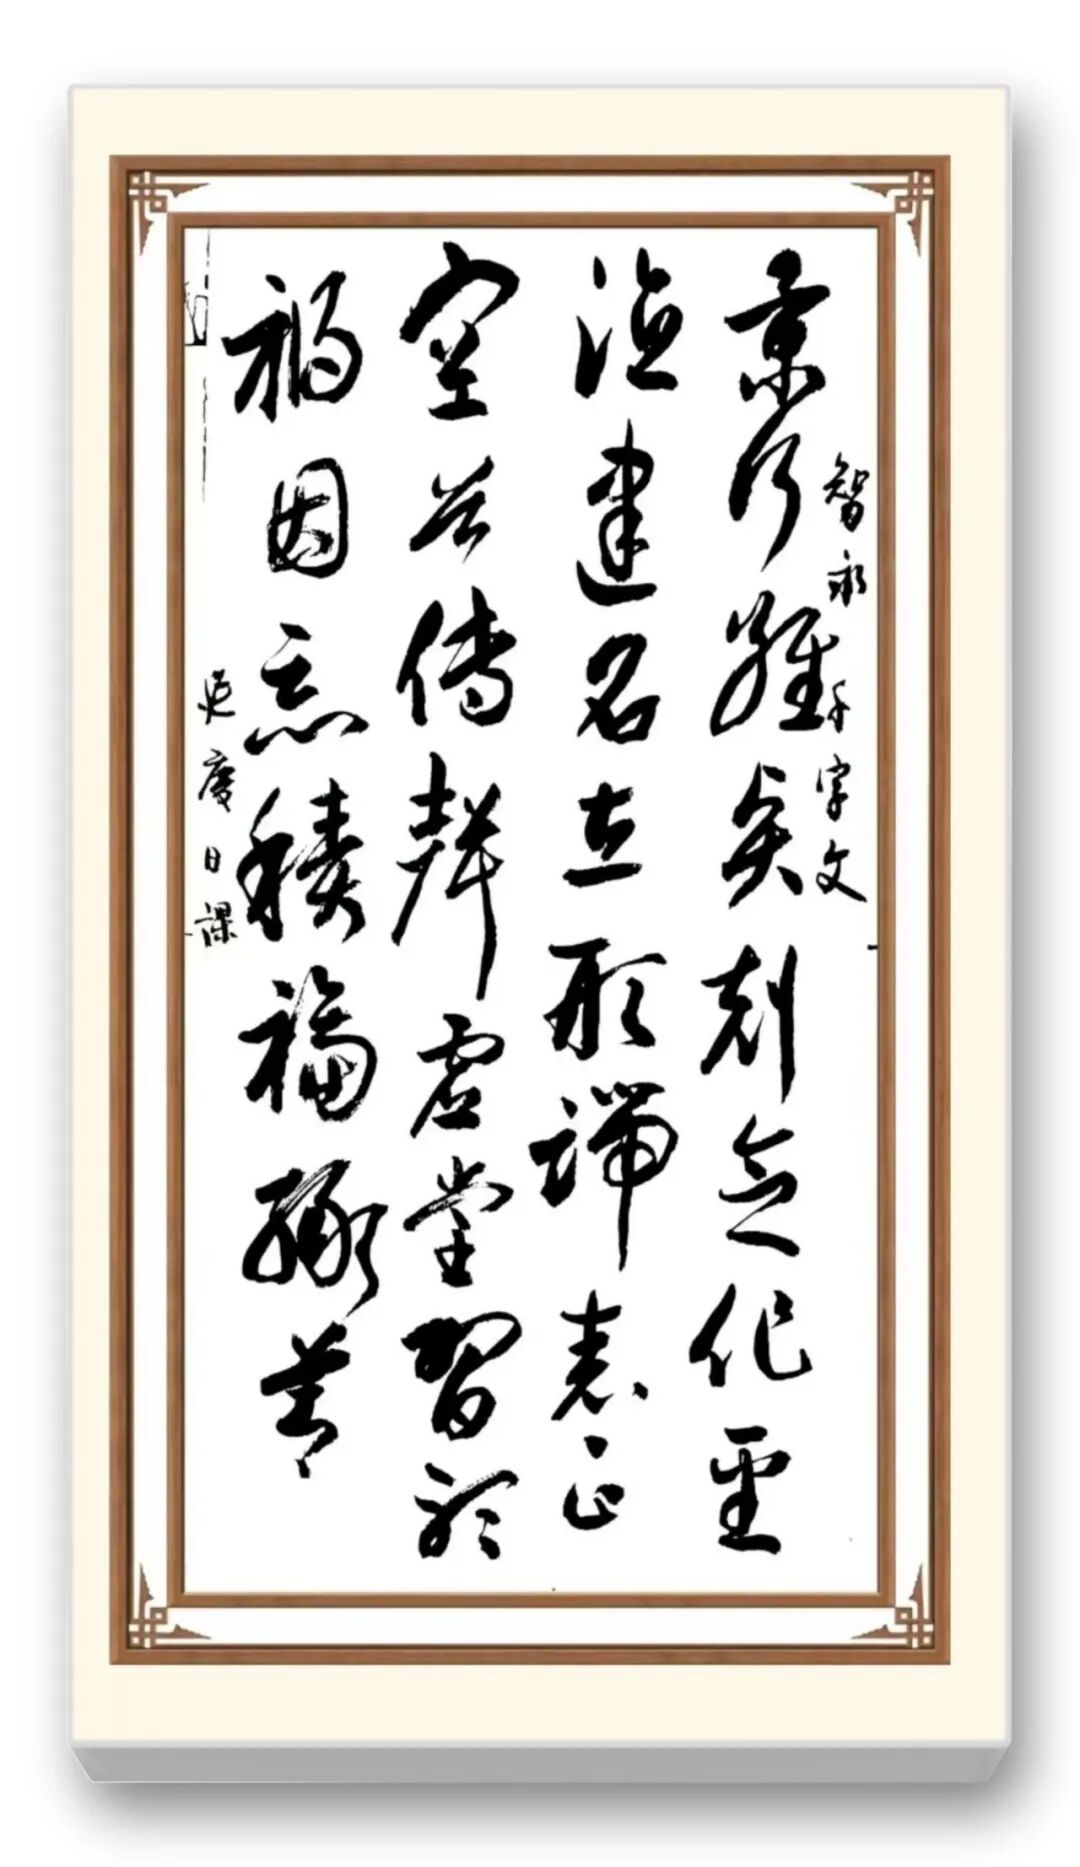 智永千字文
景行維賢剋念作聖
德建名立形端表正
空谷傳聲虛堂習聽
禍因惡積福緣善
慶日課